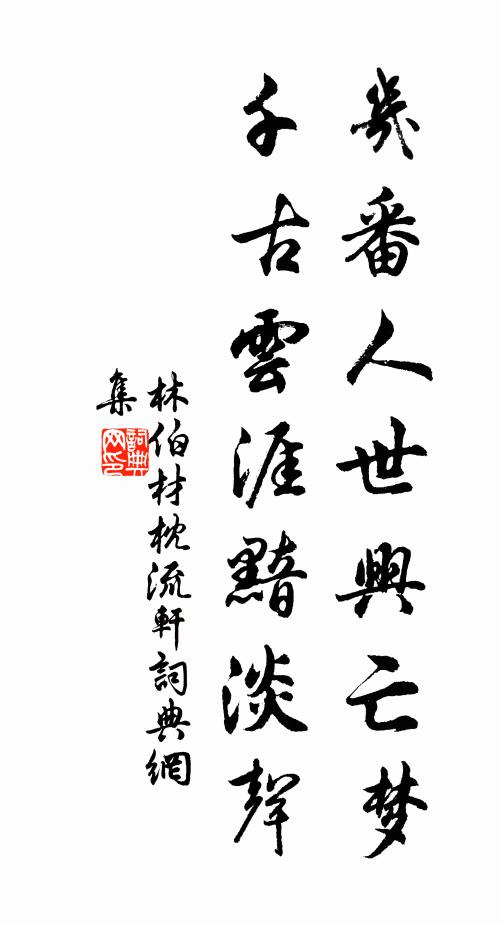 幾番人世興亡梦
千古雲涯黯淡聲
林伯材枕流軒詞典網
集
詞典网印